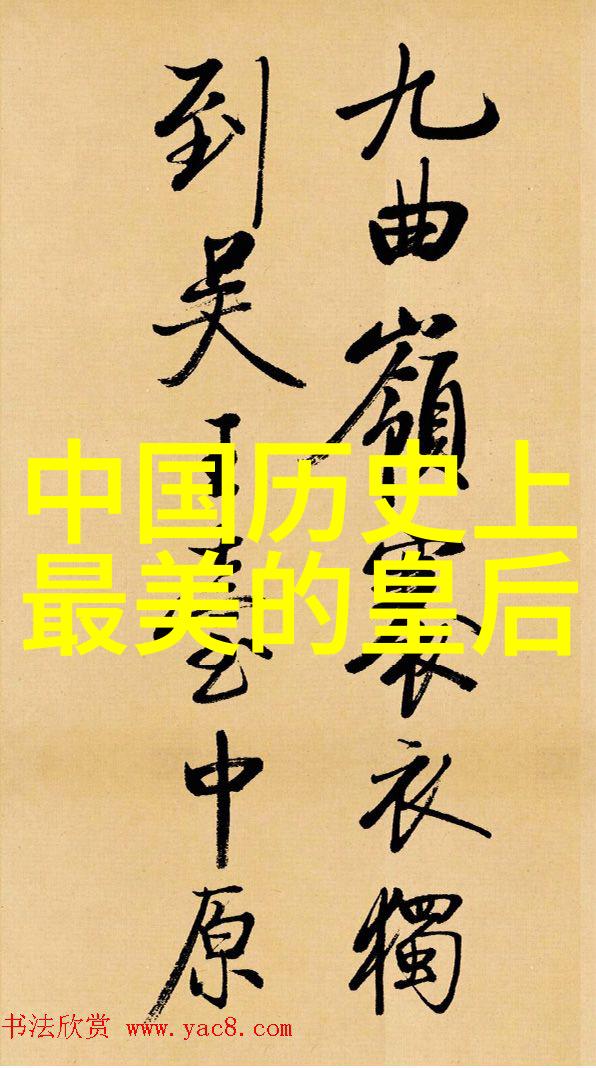 九曲嶺褰衣獨
到吴王臺中原
中国历史上
最美的皇后
书法欣赏 www.yac8.com